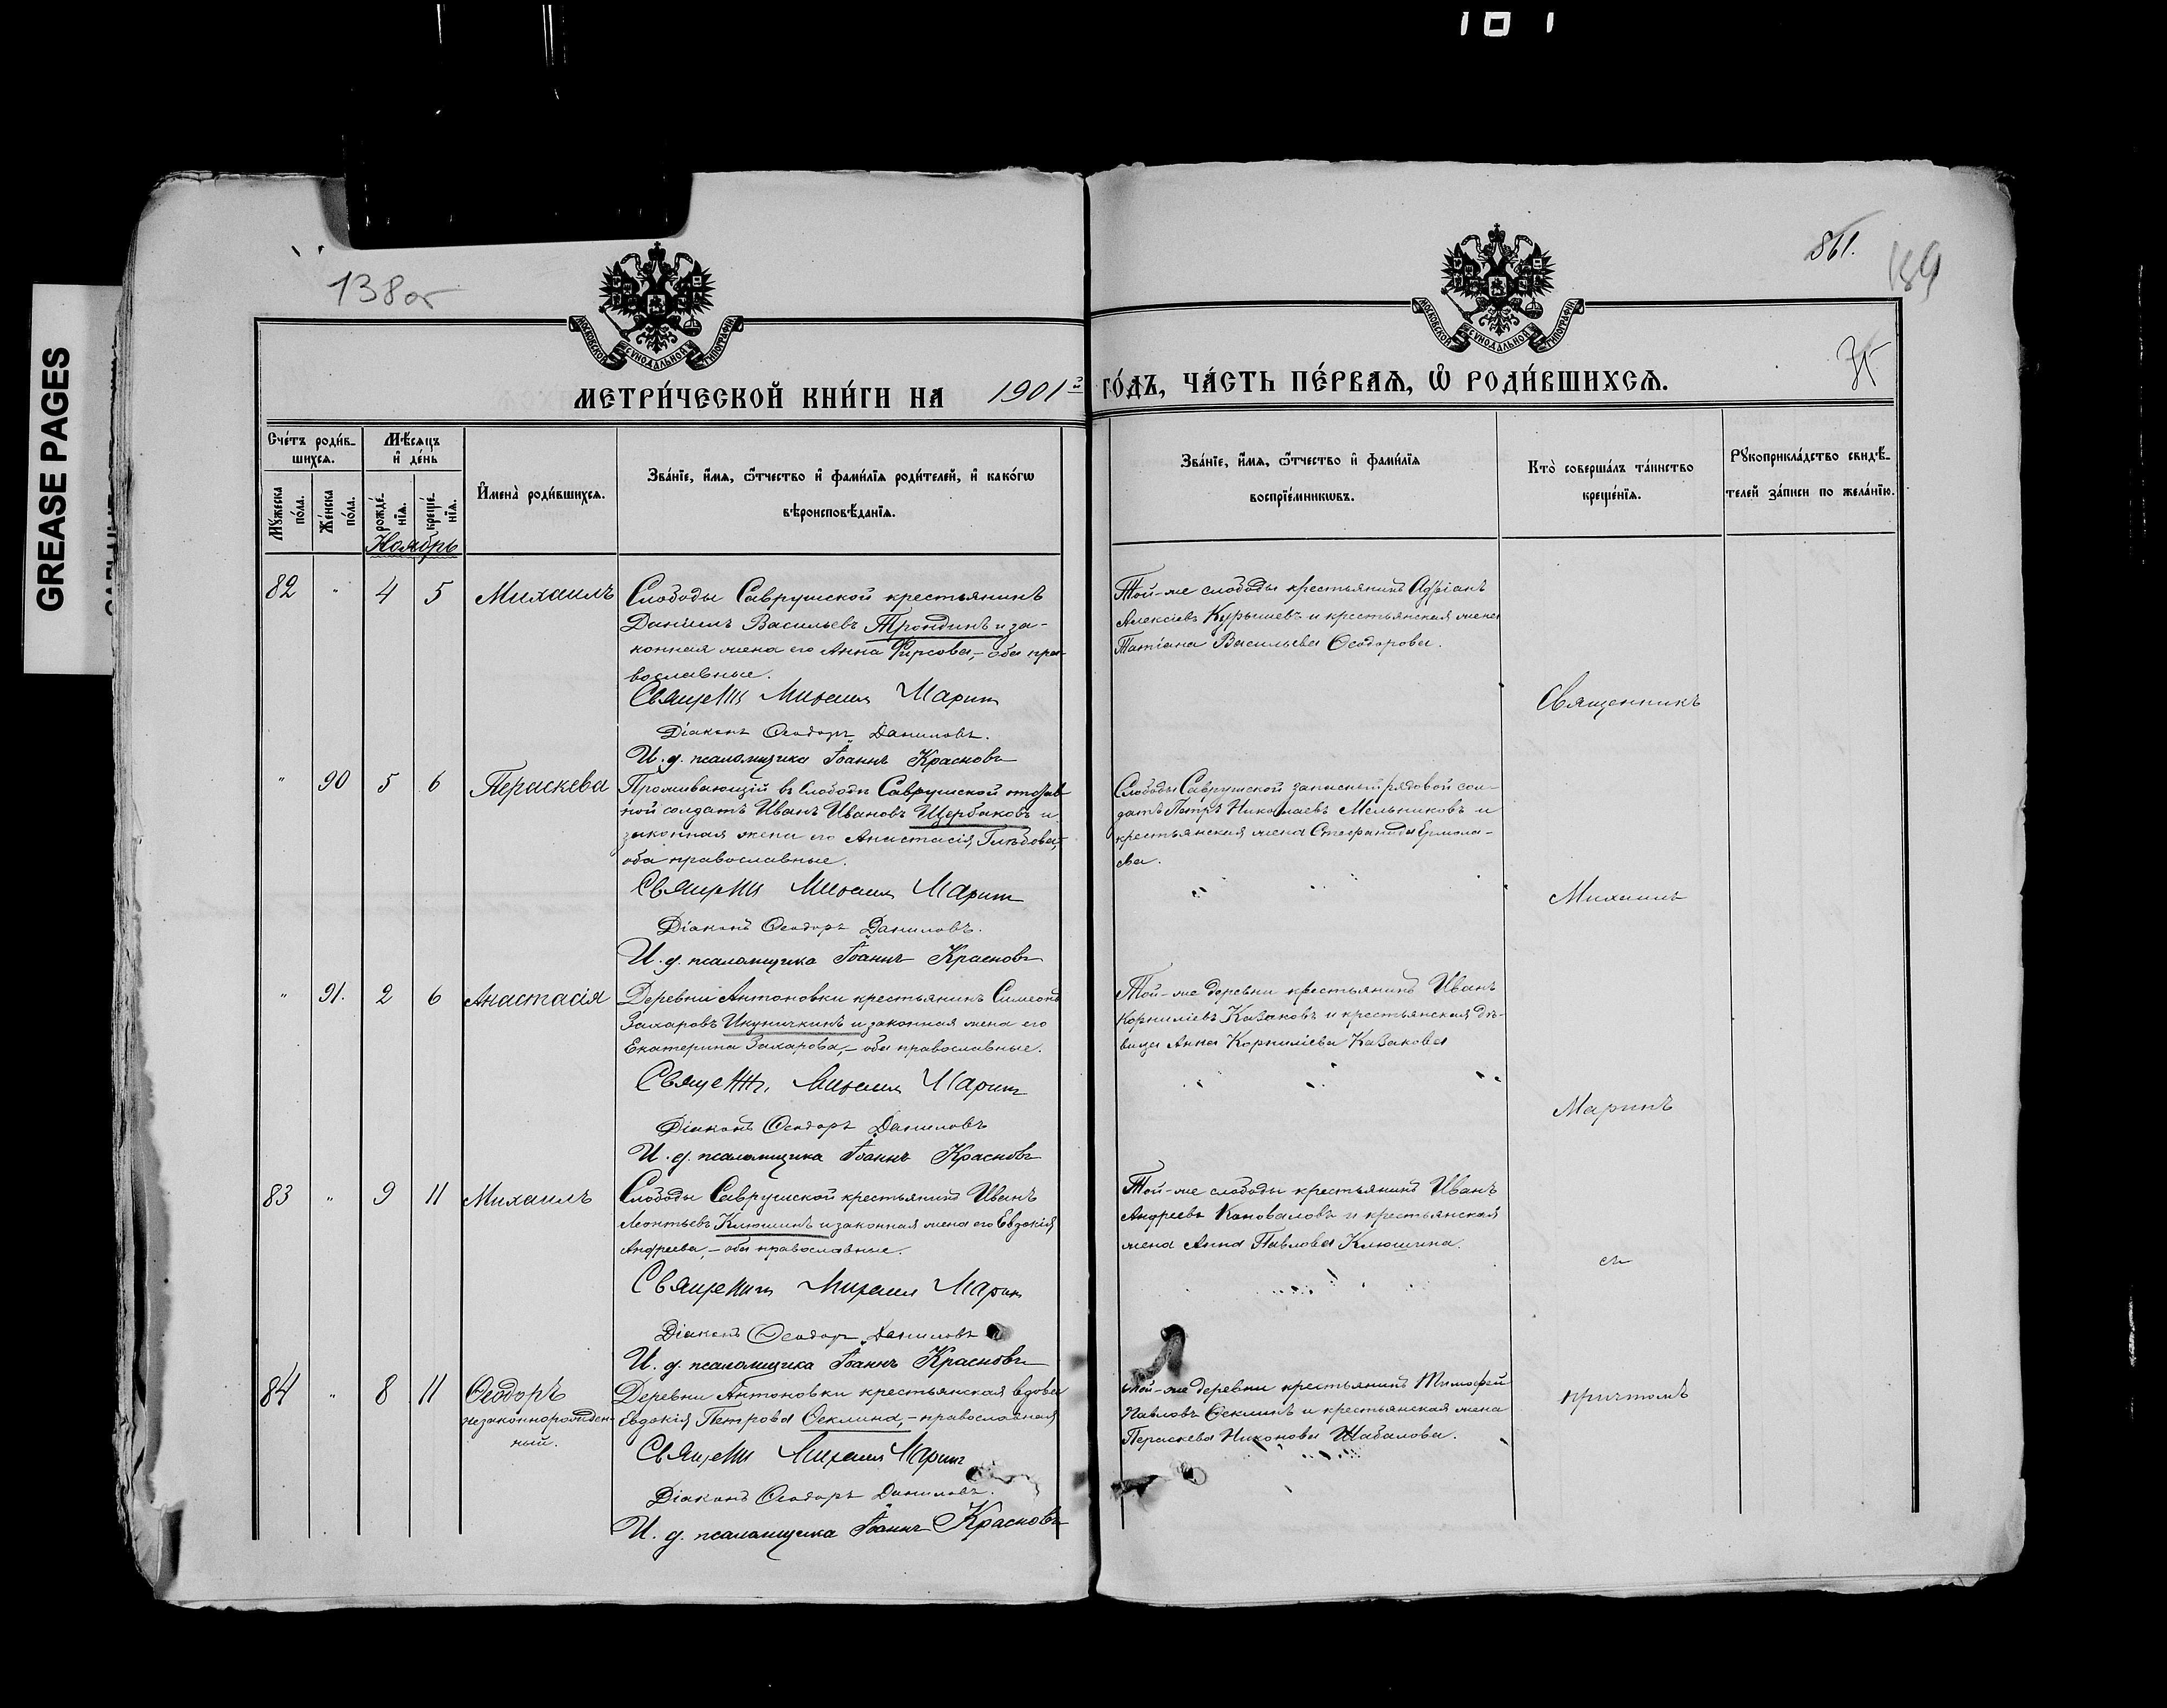 GREASE PAGES
138 об
861.
189
МОСКОВСКОЙ СѴНОДАЛЬНОЙ ТИПОГРАФІИ
МОСКОВСКОЙ СѴНОДАЛЬНОЙ ТИПОГРАФІИ
МЕТРИ́ЧЕСКОЙ КНИ́ГИ НА 1901 ГО́ДЪ, ЧА́СТЬ ПЕ́РВАѦ, Ѡ҆ РОДИ́ВШИХСѦ.
Сче́тъ роди́в-
шихсѧ.
Мѣ́сѧцъ
и҆ де́нь
Мꙋ́жеска
по́ла.
Же́нска
по́ла.
рожде́-
нїѧ.
креще́-
нїѧ.
И҆мена̀ роди́вшихсѧ.
Зва́нїе, и҆́мѧ, ѻ҆́тчество и҆ фами́лїѧ роди́телей, и҆ како́гѡ
вѣроисповѣ́данїѧ.
Зва́нїе, и҆́мѧ, ѻ҆́тчество и҆ фами́лїѧ
воспрїе́мникѡвъ.
Кто̀ соверша́лъ та́инство
креще́нїѧ.
Рꙋкоприкла́дство свидѣ́-
телей за́писи по жела́нїю.
Ноябрь
82 " 4 5 Михаилъ
Слободы Саврушской крестьянинъ
Даніилъ Васильевъ Трондинъ и за-
конная жена его Анна Фирсова, – оба пра-
вославные.
Священ Михаил Марин
Діаконъ Ѳеодоръ Даниловъ.
И. д. псаломщика Іоаннъ Красновъ
Той-же слободы крестьянинъ Адріанъ
Алексіевъ Курышевъ и крестьянская жена
Татіана Васильева Ѳеодорова.
Священникъ
" 90 5 6 Параскева
Проживающій въ Слободѣ Саврушской отстав-
ной солдатъ Иванъ Ивановъ Щербаковъ и
законная жена его Анастасія Глѣбова,
оба православные.
Священ Михаил Марин
Діаконъ Ѳеодоръ Даниловъ.
И. д. псаломщика Іоаннъ Красновъ
Слободы Саврушской запасный рядовой сол-
датъ Петръ Николаевъ Мельниковъ и
крестьянская жена Стефанида Ермола-
ева.
Михаилъ
" 91. 2 6 Анастасія
Деревни Антоновки крестьянинъ Симеонъ
Захаровъ Икуничкинъ и законная жена его
Екатерина Захарова, – оба православные.
Священ. Михаил Марин
Діаконъ Ѳеодоръ Даниловъ
И. д. псаломщика Іоаннъ Красновъ
Той-же деревни крестьянинъ Иванъ
Корниліевъ Казаковъ и крестьянская дѣ-
вица Анна Корниліева Казакова
Маринъ
83 " 9 11 Михаилъ
Слободы Саврушской крестьянинъ Иванъ
Леонтьевъ Клюшинъ и законная жена его Евдокія
Андреева, – оба православные.
Священникъ Михаил Марин
Діаконъ Ѳеодоръ Даниловъ
И. д. псаломщика Іоаннъ Красновъ
Той-же слободы крестьянинъ Иванъ
Андреевъ Коноваловъ и крестьянская
жена Анна Павлова Клюшина.
съ
84 " 8 11 Ѳеодоръ
незаконнорожден-
ный.
Деревни Антоновки крестьянская вдова
Евдокія Петрова Ѳеклина, – православная
Священ Михаил Марин
Діаконъ Ѳеодоръ Даниловъ.
И. д. псаломщика Іоаннъ Красновъ
Той-же деревни крестьянинъ Тимофей
Павловъ Ѳеклинъ и крестьянская жена
Параскева Никонова Шабалова.
причтомъ